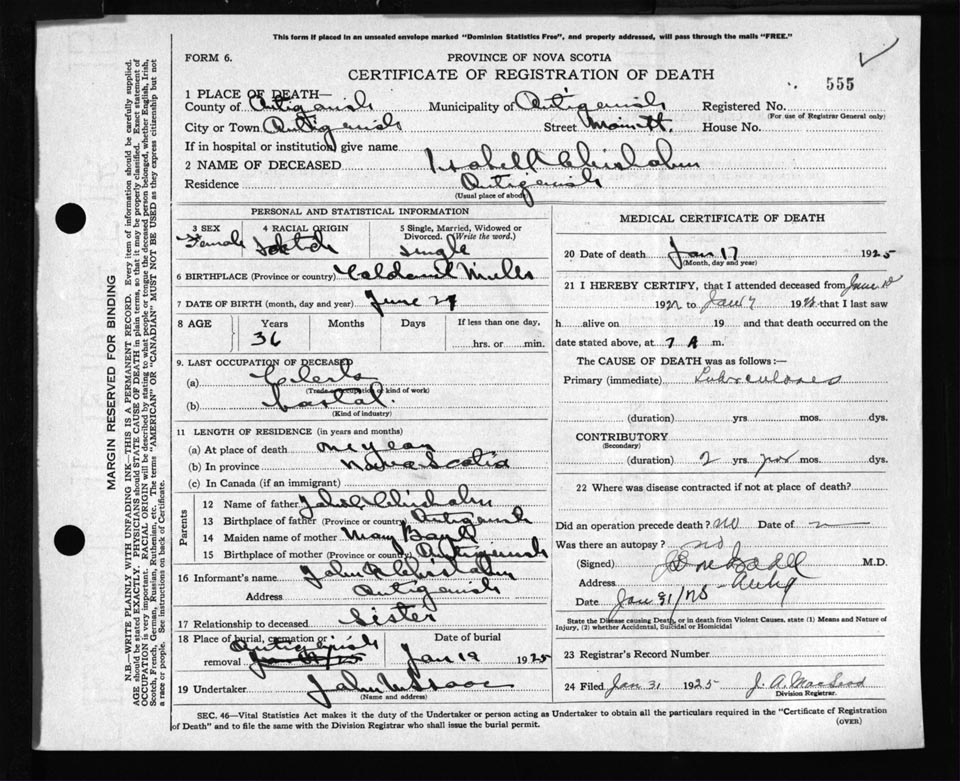 This form if placed in an unsealed envelope marked "Dominion Statistics Free", and properly addressed, will pass through the mails "FREE."
FORM 6.
PROVINCE OF NOVA SCOTIA
CERTIFICATE OF REGISTRATION OF DEATH
555
1 PLACE OF DEATH—
County of Antigonish Municipality of Antigonish Registered No.
(For use of Registrar General only)
City or Town Antigonish Street Main St. House No.
If in hospital or institution, give name
2 NAME OF DECEASED Isabell Chisholm
Residence Antigonish
(Usual place of abode)
PERSONAL AND STATISTICAL INFORMATION
3 SEX 4 RACIAL ORIGIN 5 Single, Married, Widowed or Divorced. (Write the word.)
Female Scotch Single
6 BIRTHPLACE (Province or country) Mills
7 DATE OF BIRTH (month, day and year) June 27
8 AGE Years Months Days If less than one day,
36 hrs. or min.
9. LAST OCCUPATION OF DECEASED
(a)
(Trade, occupation or kind of work)
(b)
(Kind of industry)
11 LENGTH OF RESIDENCE (in years and months)
(a) At place of death one year
(b) In province Nova Scotia
(c) In Canada (if an immigrant)
Parents
12 Name of father John Chisholm
13 Birthplace of father (Province or country) Antigonish
14 Maiden name of mother Mary Boyd
15 Birthplace of mother (Province or country) Antigonish
16 Informant's name John Chisholm
Address Antigonish
17 Relationship to deceased Sister
18 Place of burial, cremation or removal Antigonish Date of burial
Jan 19 1925
19 Undertaker John McIsaac
(Name and address)
MEDICAL CERTIFICATE OF DEATH
20 Date of death Jan 17 1925
(Month, day and year)
21 I HEREBY CERTIFY, that I attended deceased from June
192 to Jan 7 192 that I last saw
h alive on 19 and that death occurred on
date stated above, at 7 A m.
The CAUSE OF DEATH was as follows:—
Primary (immediate) Tuberculosis
(duration) yrs. mos. dys.
CONTRIBUTORY
(Secondary)
(duration) 2 yrs mos. dys.
22 Where was disease contracted if not at place of death?
Did an operation precede death? No Date of
Was there an autopsy? no
(Signed) M.D.
Address Antig
Date Jan 31/25
State the Disease causing Death, or in death from Violent Causes, state (1) Means and Nature of Injury, (2) whether Accidental, Suicidal or Homicidal
23 Registrar's Record Number
24 Filed Jan 31 1925 J. A. MacLeod
Division Registrar.
SEC. 46—Vital Statistics Act makes it the duty of the Undertaker or person acting as Undertaker to obtain all the particulars required in the "Certificate of Registration
of Death" and to file the same with the Division Registrar who shall issue the burial permit.
(OVER)
MARGIN RESERVED FOR BINDING
N.B.—WRITE PLAINLY WITH UNFADING INK—THIS IS A PERMANENT RECORD. Every item of information should be carefully supplied.
AGE should be stated EXACTLY. PHYSICIANS should STATE CAUSE OF DEATH in plain terms, so that it may be properly classified. Exact statement of
OCCUPATION is very important. RACIAL ORIGIN will be described by stating to what people or tongue the deceased person belonged, whether English, Irish,
Scotch, French, German, Russian, Ruthenian, etc. The terms "AMERICAN" or "CANADIAN" MUST NOT BE USED as they express citizenship but not
a race or people. See instructions on back of Certificate.